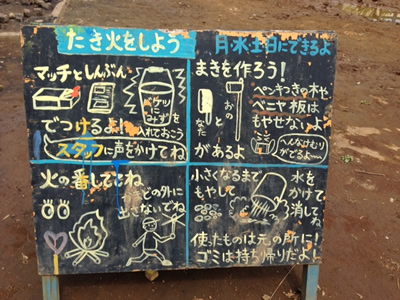 たき火をしよう
月・水・土・日にできるよ
マッチとしんぶん
バケツに
みずを
入れておこう
でつけるよ!
スタッフに声をかけてね
まきを作ろう!
なた
と
おの
があるよ
ペンキつきの木や
ベニヤ板は
もやせないよ
へんなけむり
がでるよ〜
火の番しててね
どの外に
出さないでね
小さくなるまで
もやして
水を
かけて
消してね
使ったものは元の所に!
ゴミは持ち帰りだよ!